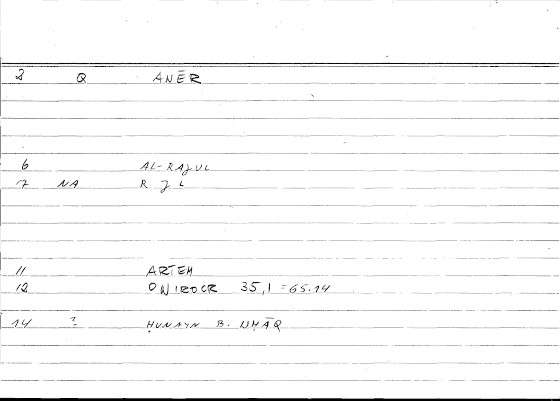 2 Q ANĒR
6 AL-RAJUL
7 NA R J L
11 ARTEM
12 ONIROCR 35,1 = 65.14
14 ? ḤUNAYN B.